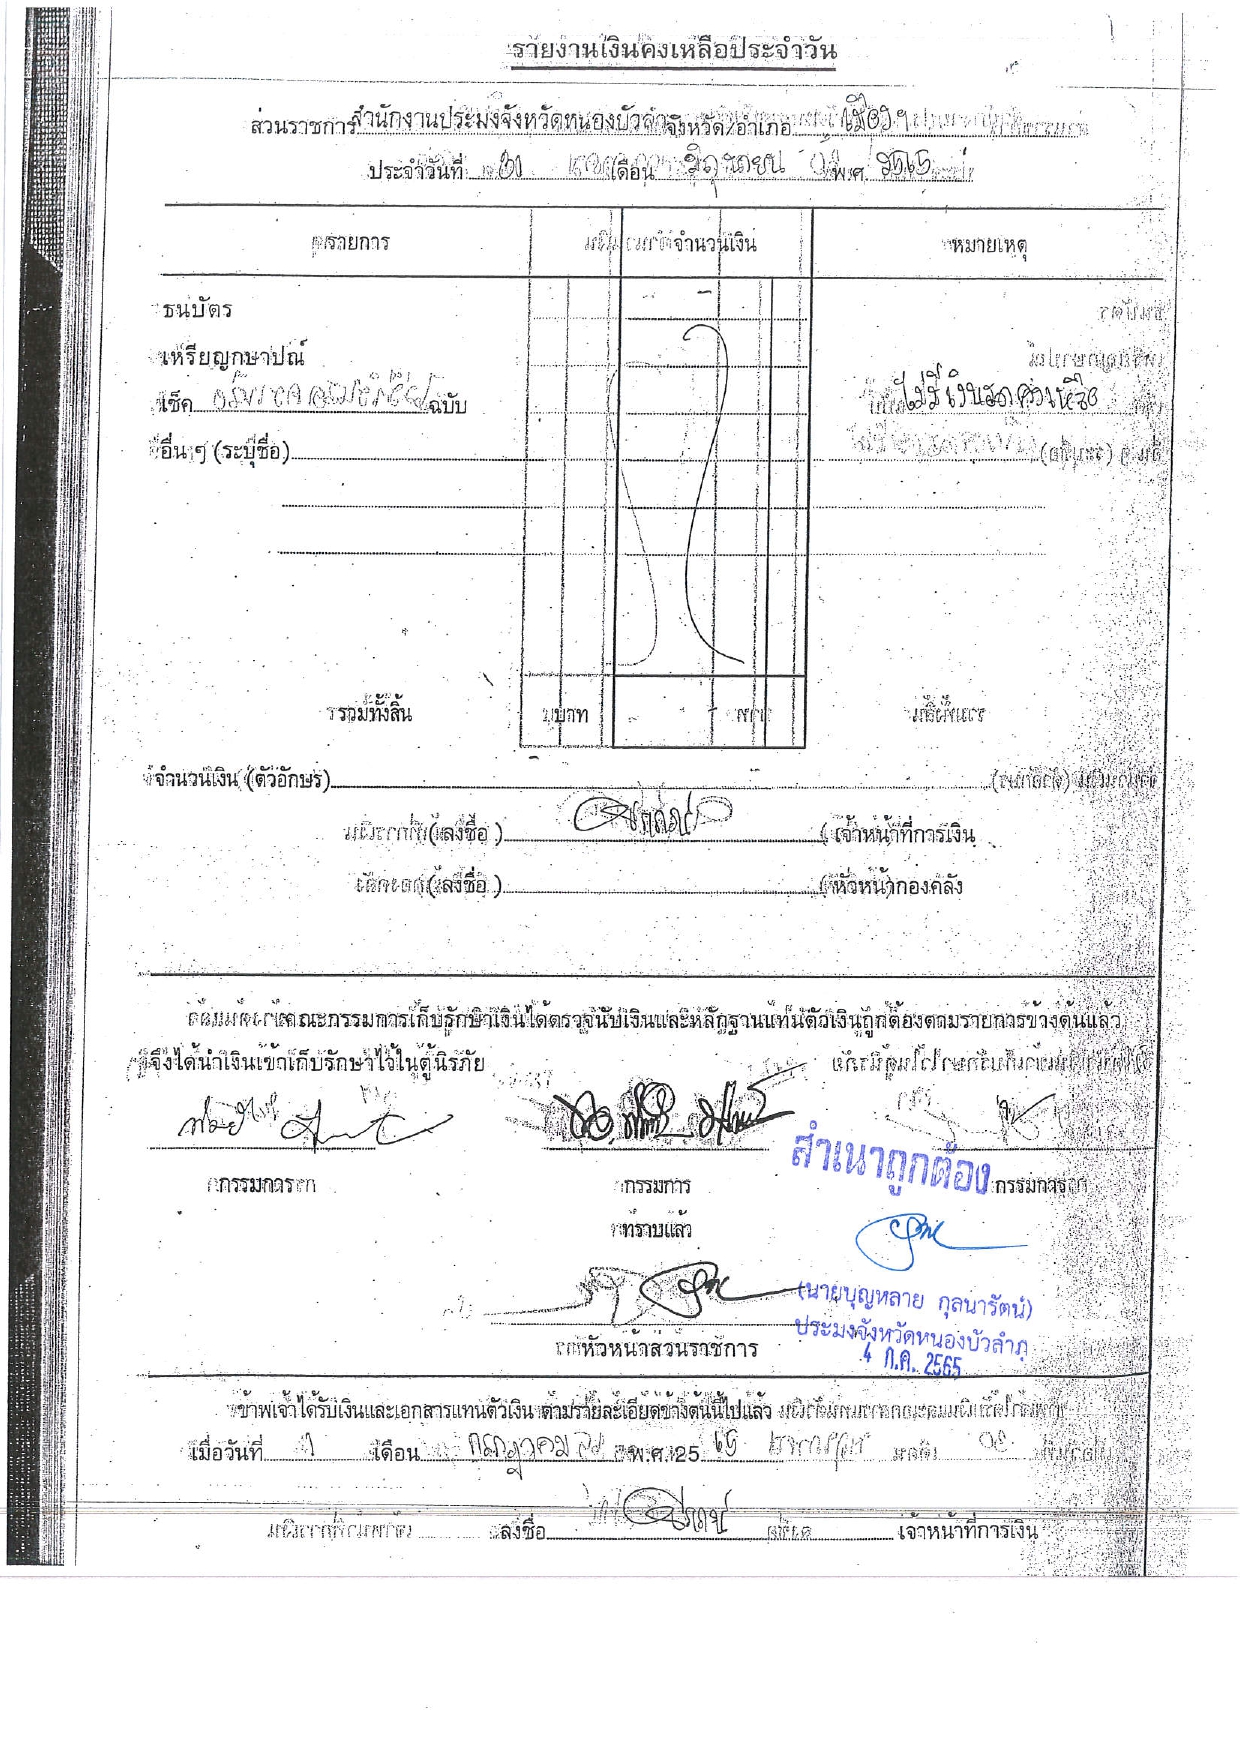 รายงานเงินคงเหลือประจำวัน
ส่วนราชการ สำนักงานประมงจังหวัดหนองบัวลำภู จังหวัด/อำเภอ เมืองฯ
ประจำวันที่ เดือน มิถุนายน พ.ศ. 2565
รายการ จำนวนเงิน หมายเหตุ
ธนบัตร
เหรียญกษาปณ์
เช็ค ฉบับ ไม่มีเงินสดคงเหลือ
อื่น ๆ (ระบุชื่อ)
รวมทั้งสิ้น บาท
จำนวนเงิน (ตัวอักษร)
(ลงชื่อ) เจ้าหน้าที่การเงิน
(ลงชื่อ) หัวหน้ากองคลัง
คณะกรรมการเก็บรักษาเงินได้ตรวจนับเงินและหลักฐานแทนตัวเงินถูกต้องตามรายการข้างต้นแล้ว
จึงได้นำเงินเข้าเก็บรักษาไว้ในตู้นิรภัย
สำเนาถูกต้อง
กรรมการ กรรมการ กรรมการ
ทราบแล้ว
(นายบุญหลาย กุลนารัตน์)
ประมงจังหวัดหนองบัวลำภู
หัวหน้าส่วนราชการ
4 ก.ค. 2565
ข้าพเจ้าได้รับเงินและเอกสารแทนตัวเงิน ตามรายละเอียดข้างต้นนี้ไปแล้ว
เมื่อวันที่ 1 เดือน กรกฎาคม พ.ศ. 25 65
ลงชื่อ เจ้าหน้าที่การเงิน